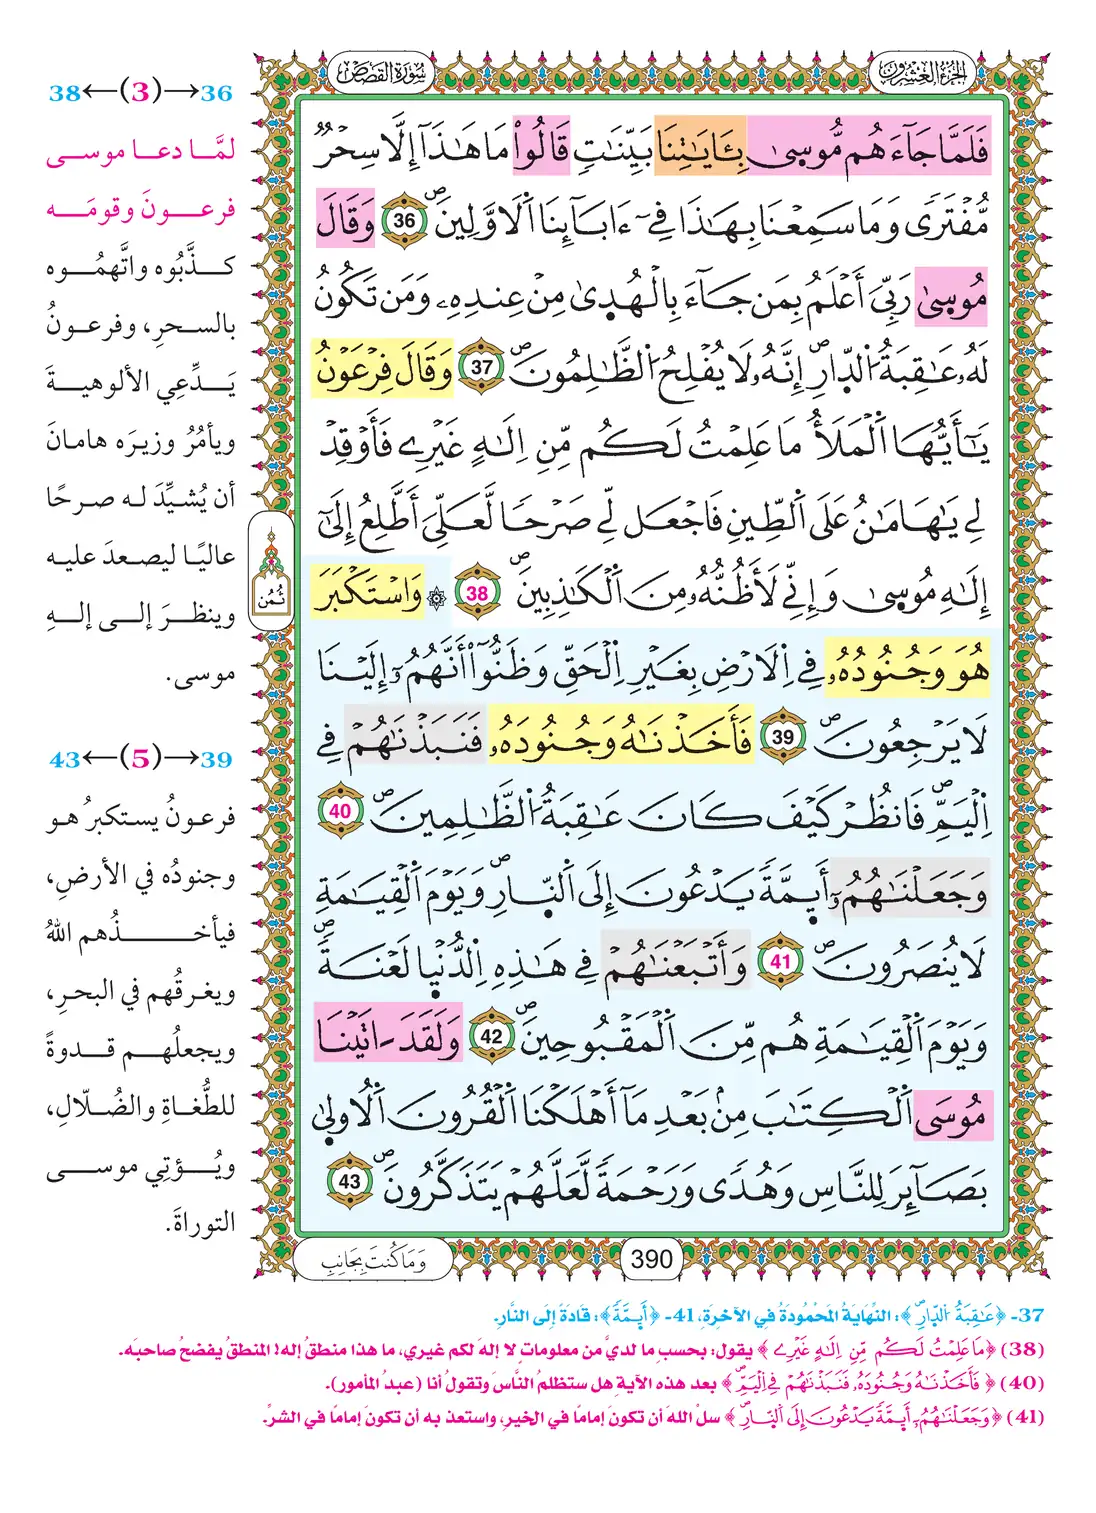 الجزء العشرون
سورة القصص
فَلَمَّا جَآءَهُم مُّوسىٰ بِـَٔايَٰتِنَا بَيِّنَٰتٖ قَالُواْ مَا هَٰذَآ إِلَّا سِحْرٞ
مُّفْتَرٗى وَمَا سَمِعْنَا بِهَٰذَا فِےٓ ءَابَآئِنَا اَلَاوَّلِينَۖ 36 وَقَالَ
مُوسىٰ رَبِّيَ أَعْلَمُ بِمَن جَآءَ بِالْهُدىٰ مِنْ عِندِهِۦ وَمَن تَكُونُ
لَهُۥ عَٰقِبَةُ اُ۬لدّ۪ارِۖ إِنَّهُۥ لَا يُفْلِحُ اُ۬لظَّٰلِمُونَۖ 37 وَقَالَ فِرْعَوْنُ
يَٰٓأَيُّهَا اَ۬لْمَلَأُ مَا عَلِمْتُ لَكُم مِّنِ اِلَٰهٍ غَيْرِے فَأَوْقِدْ
لِے يَٰهَٰمَٰنُ عَلَى اَ۬لطِّينِ فَاجْعَل لِّے صَرْحاٗ لَّعَلِّيَ أَطَّلِعُ إِلَىٰٓ
إِلَٰهِ مُوسىٰ وَإِنِّے لَأَظُنُّهُۥ مِنَ اَ۬لْكَٰذِبِينَۖ 38 ۞ وَاسْتَكْبَرَ
هُوَ وَجُنُودُهُۥ فِے اِ۬لَارْضِ بِغَيْرِ اِ۬لْحَقِّ وَظَنُّوٓاْ أَنَّهُمُۥٓ إِلَيْنَا
لَا يَرْجِعُونَۖ 39 فَأَخَذْنَٰهُ وَجُنُودَهُۥ فَنَبَذْنَٰهُمْ فِے
اِ۬لْيَمِّۖ فَانظُرْ كَيْفَ كَانَ عَٰقِبَةُ اُ۬لظَّٰلِمِينَۖ 40
وَجَعَلْنَٰهُمُۥٓ أَيِمَّةٗ يَدْعُونَ إِلَى اَ۬لنّ۪ارِۖ وَيَوْمَ اَ۬لْقِيَٰمَةِ
لَا يُنصَرُونَۖ 41 وَأَتْبَعْنَٰهُمْ فِے هَٰذِهِ اِ۬لدُّنْيٰا لَعْنَةٗۖ
وَيَوْمَ اَ۬لْقِيَٰمَةِ هُم مِّنَ اَ۬لْمَقْبُوحِينَۖ 42 وَلَقَدَ اٰتَيْنَا
مُوسَى اَ۬لْكِتَٰبَ مِنۢ بَعْدِ مَآ أَهْلَكْنَا اَ۬لْقُرُونَ اَ۬لُاولىٰ
بَصَآئِرَ لِلنَّاسِ وَهُدٗى وَرَحْمَةٗ لَّعَلَّهُمْ يَتَذَكَّرُونَۖ 43
ثُمُن
وَمَا كُنتَ بِجَانِبِ
390
36→(3)←38
لمَّا دعا موسى
فرعونَ وقومَه
كذَّبُوه واتَّهمُوه
بالسحرِ، وفرعونُ
يَدِّعِي الألوهيةَ
ويأمُرُ وزيرَه هامانَ
أن يُشيِّدَ له صرحًا
عاليًا ليصعدَ عليه
وينظرَ إلى إلهِ
موسى.
39→(5)←43
فرعونُ يستكبرُ هو
وجنودُه في الأرضِ،
فيأخذُهم اللهُ
ويغرقُهم في البحرِ،
ويجعلُهم قدوةً
للطُّغاةِ والضُلّالِ،
ويُؤتِي موسى
التوراةَ.
37- ﴿عَٰقِبَةُ اُ۬لدّ۪ارِۖ﴾: النِّهَايَةُ المَحْمُودَةُ في الآخِرَةِ، 41- ﴿أَيِمَّةٗ﴾: قَادَةً إلى النَّارِ.
(38) ﴿مَا عَلِمْتُ لَكُم مِّنِ اِلَٰهٍ غَيْرِے﴾ يقول: بحسبِ ما لديَّ من معلوماتٍ لا إلهَ لكم غيري، ما هذا منطقُ إله! المنطقُ يفضحُ صاحبَه.
(40) ﴿فَأَخَذْنَٰهُ وَجُنُودَهُۥ فَنَبَذْنَٰهُمْ فِے اِ۬لْيَمِّۖ﴾ بعد هذه الآيةِ هل ستظلمُ النَّاسَ وتقولُ أنا (عبدُ المأمور).
(41) ﴿وَجَعَلْنَٰهُمُۥٓ أَيِمَّةٗ يَدْعُونَ إِلَى اَ۬لنّ۪ارِۖ﴾ سلْ اللهَ أن تكونَ إمامًا في الخيرِ، واستعذ به أن تكونَ إمامًا في الشرِّ.